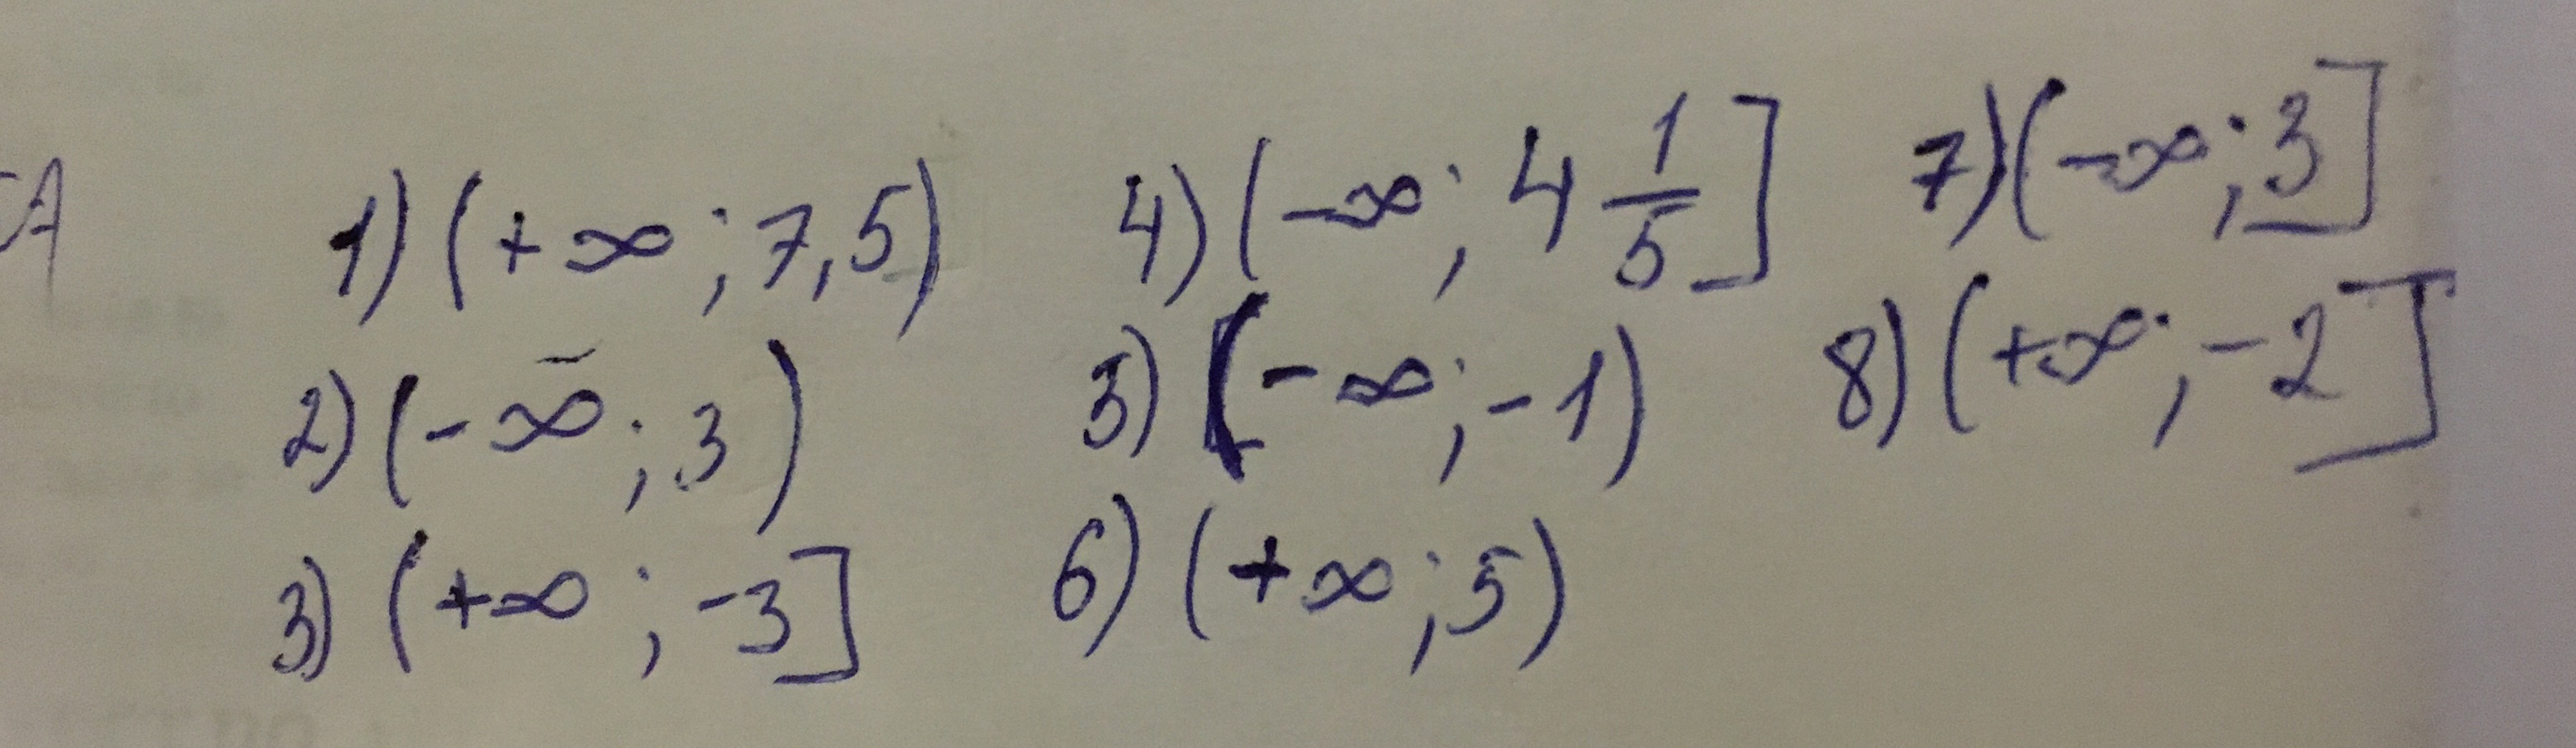 A
1) (+∞; 7,5)
2) (-∞; 3)
3) (+∞; -3]
4) (-∞; 4 1/5]
5) (-∞; -1)
6) (+∞; 5)
7) (-∞; 3]
8) (+∞; -2]